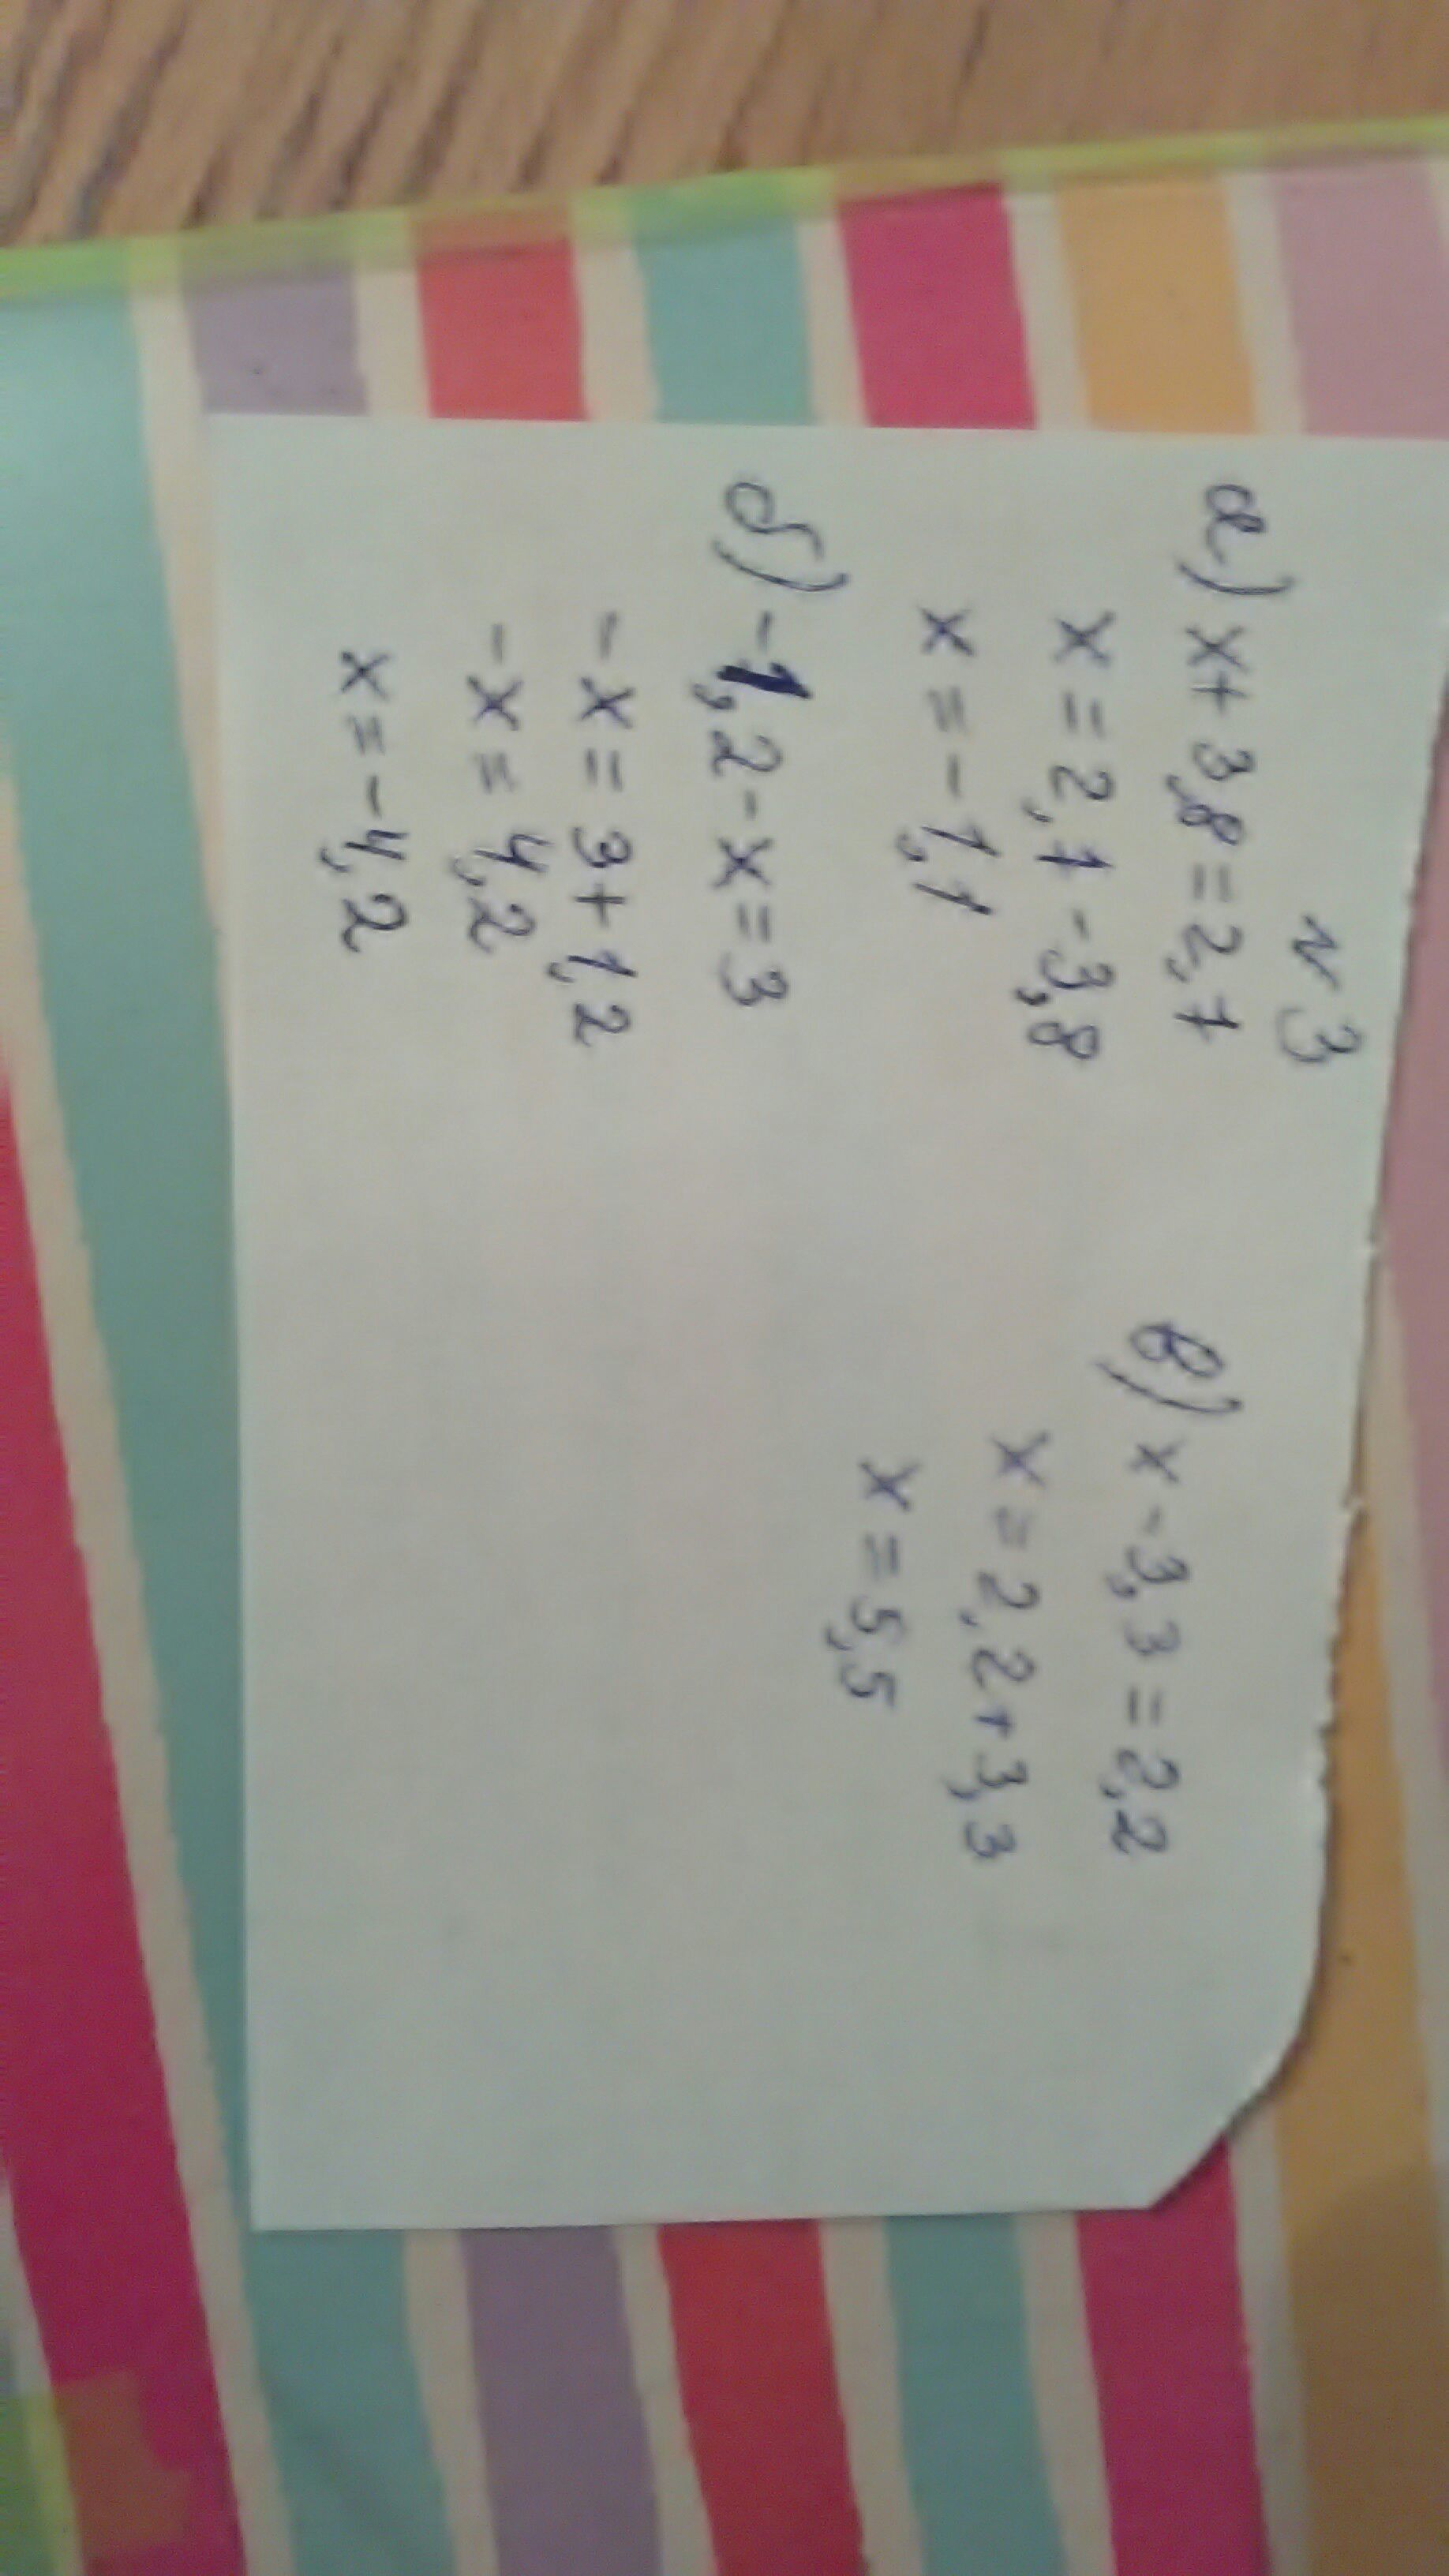 N 3
а) x + 3,8 = 2,7
x = 2,7 - 3,8
x = - 1,1
б) -1,2 - x = 3
- x = 3 + 1,2
- x = 4,2
x = - 4,2
в) x - 3,3 = 2,2
x = 2,2 + 3,3
x = 5,5